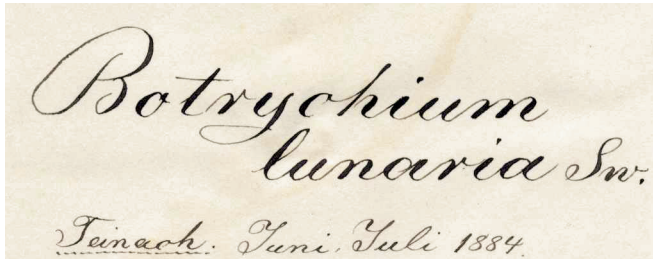 Botrychium
lunaria Sw.
Teinach. Juni. Juli 1884.